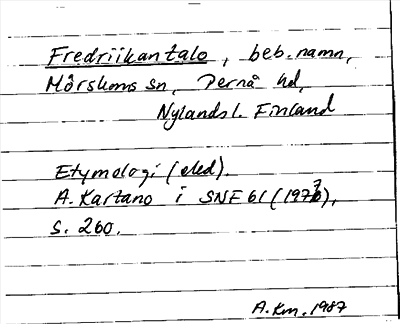 Fredriikantalo, beb.namn,
Mörskoms sn, Pernå hd,
Nylands l. Finland
Etymologi (eled).
A. Kartano i SNE 61 (1977),
s. 260.
A. Km. 1987